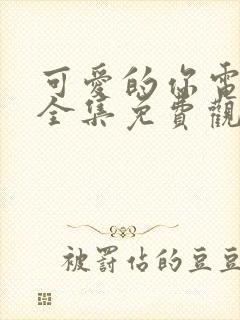 可愛的你電
全集免費觀
被罰佔的豆豆